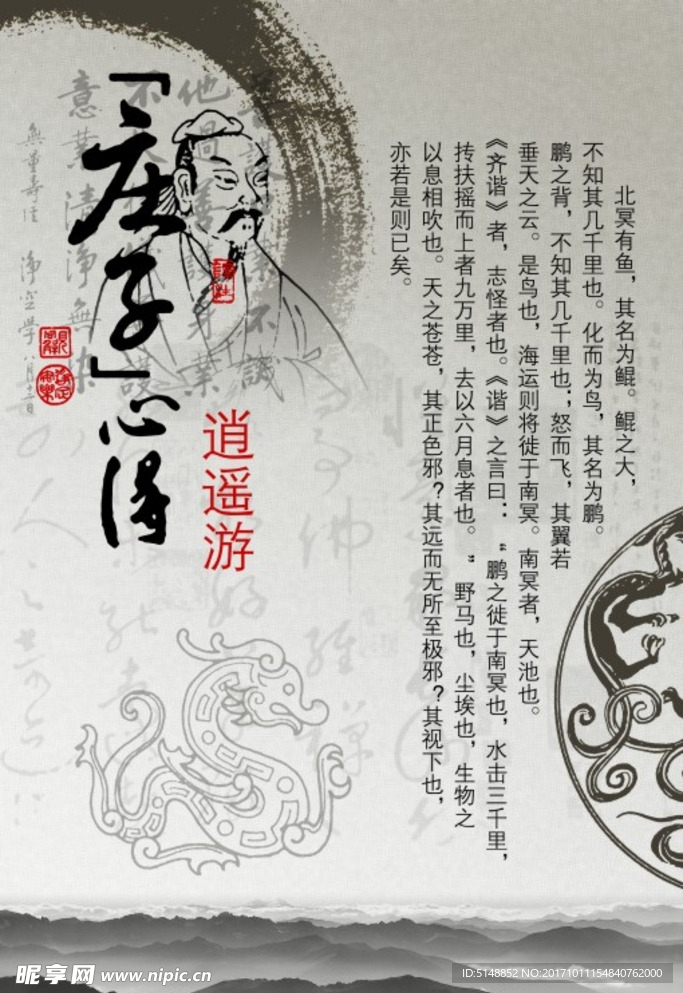 「庄子」心得
逍遥游
北冥有鱼，其名为鲲。鲲之大，
不知其几千里也。化而为鸟，其名为鹏。
鹏之背，不知其几千里也；怒而飞，其翼若
垂天之云。是鸟也，海运则将徙于南冥。南冥者，天池也。
《齐谐》者，志怪者也。《谐》之言曰：“鹏之徙于南冥也，水击三千里，
抟扶摇而上者九万里，去以六月息者也。”野马也，尘埃也，生物之
以息相吹也。天之苍苍，其正色邪？其远而无所至极邪？其视下也，
亦若是则已矣。
他過善護身業
意業清淨無染
昵享网 www.nipic.cn
ID:5148852 NO:20171011154840762000